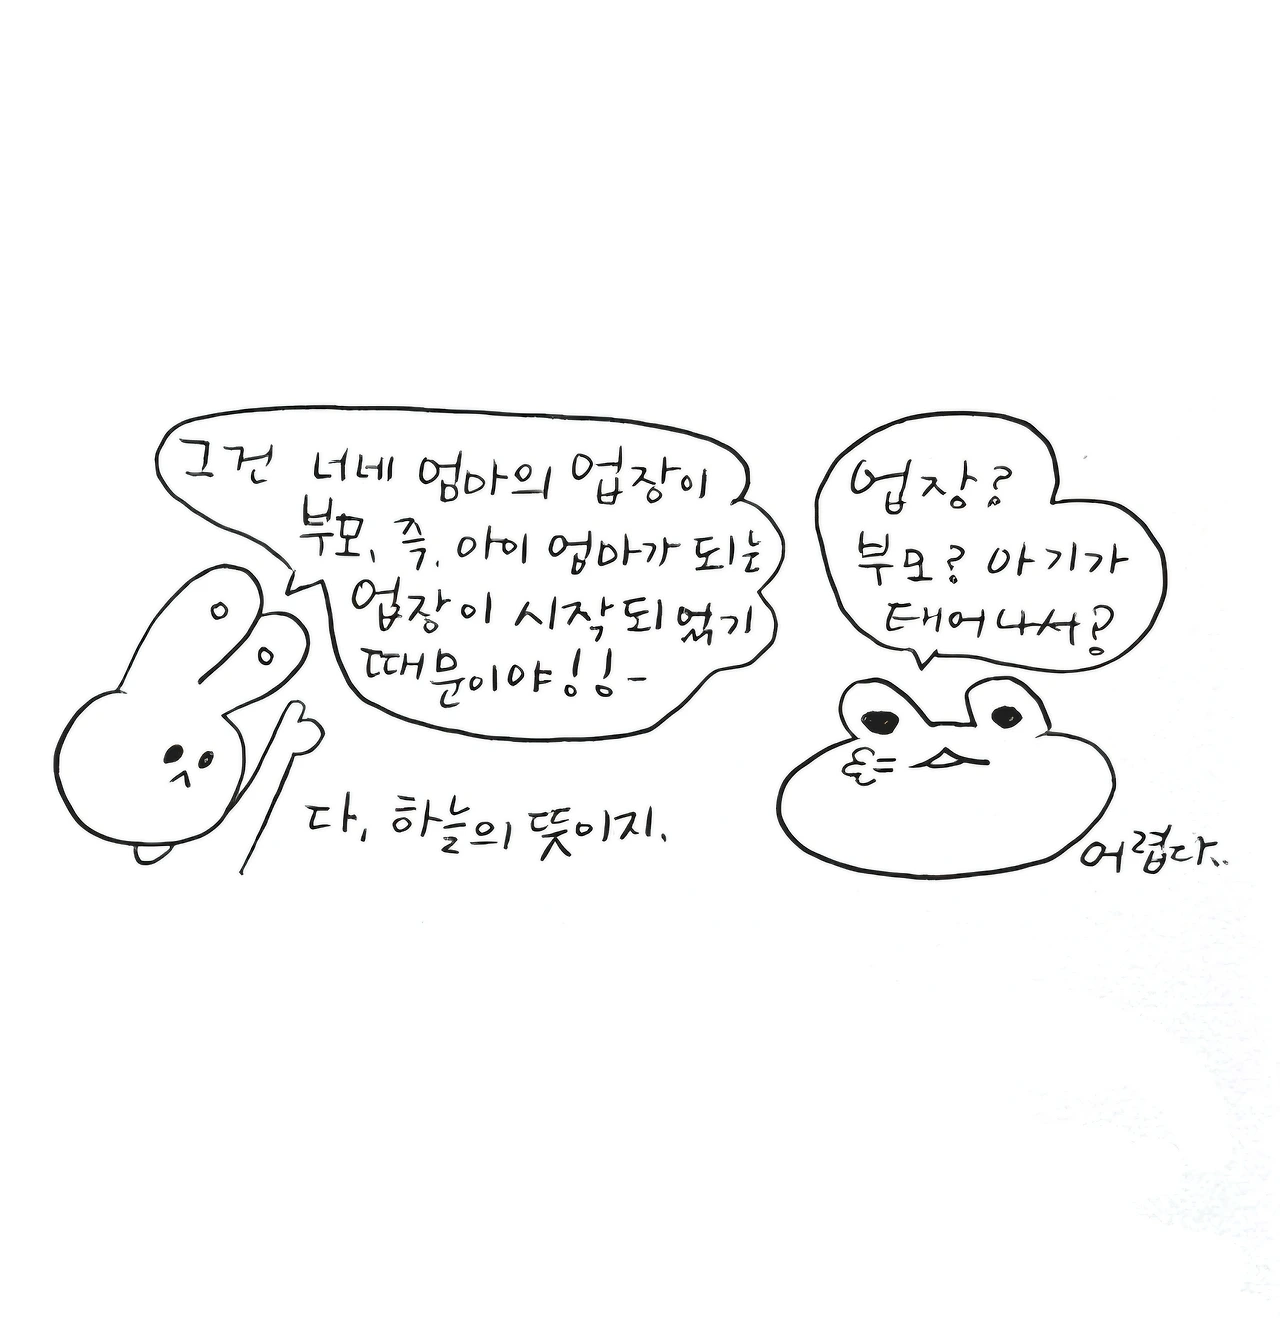 그건 너네 엄마의 업장이
부모, 즉, 아이 엄마가 되는
업장이 시작되었기
때문이야!!-
다, 하늘의 뜻이지.
업장?
부모? 아기가
태어나서?
어렵다..